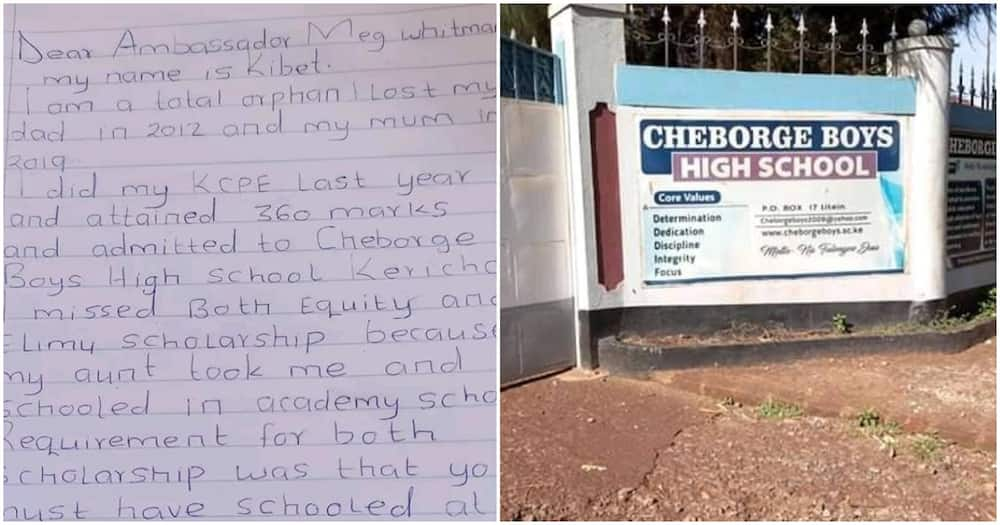 Dear Ambassador Meg Whitman
my name is Kibet.
I am a total orphan I Lost my
dad in 2012 and my mum in
2019
I did my KCPE Last year
and attained 360 marks
and admitted to Cheborge
Boys High School Kericho
I missed Both Equity and
Elimu Scholarship because
my aunt took me and
schooled in academy scho
Requirement for both
scholarship was that yo
must have schooled at
CHEBORGE BOYS
HIGH SCHOOL
Core Values
Determination
Dedication
Discipline
Integrity
Focus
P.O. BOX 17 Litein
Cheborgeboys2009@yahoo.com
www.cheborgeboys.ac.ke
Motto- Nia Tufungue Jina
HEBORGE